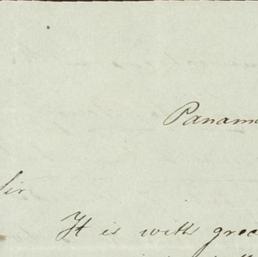 Panam
Sir
It is with grea